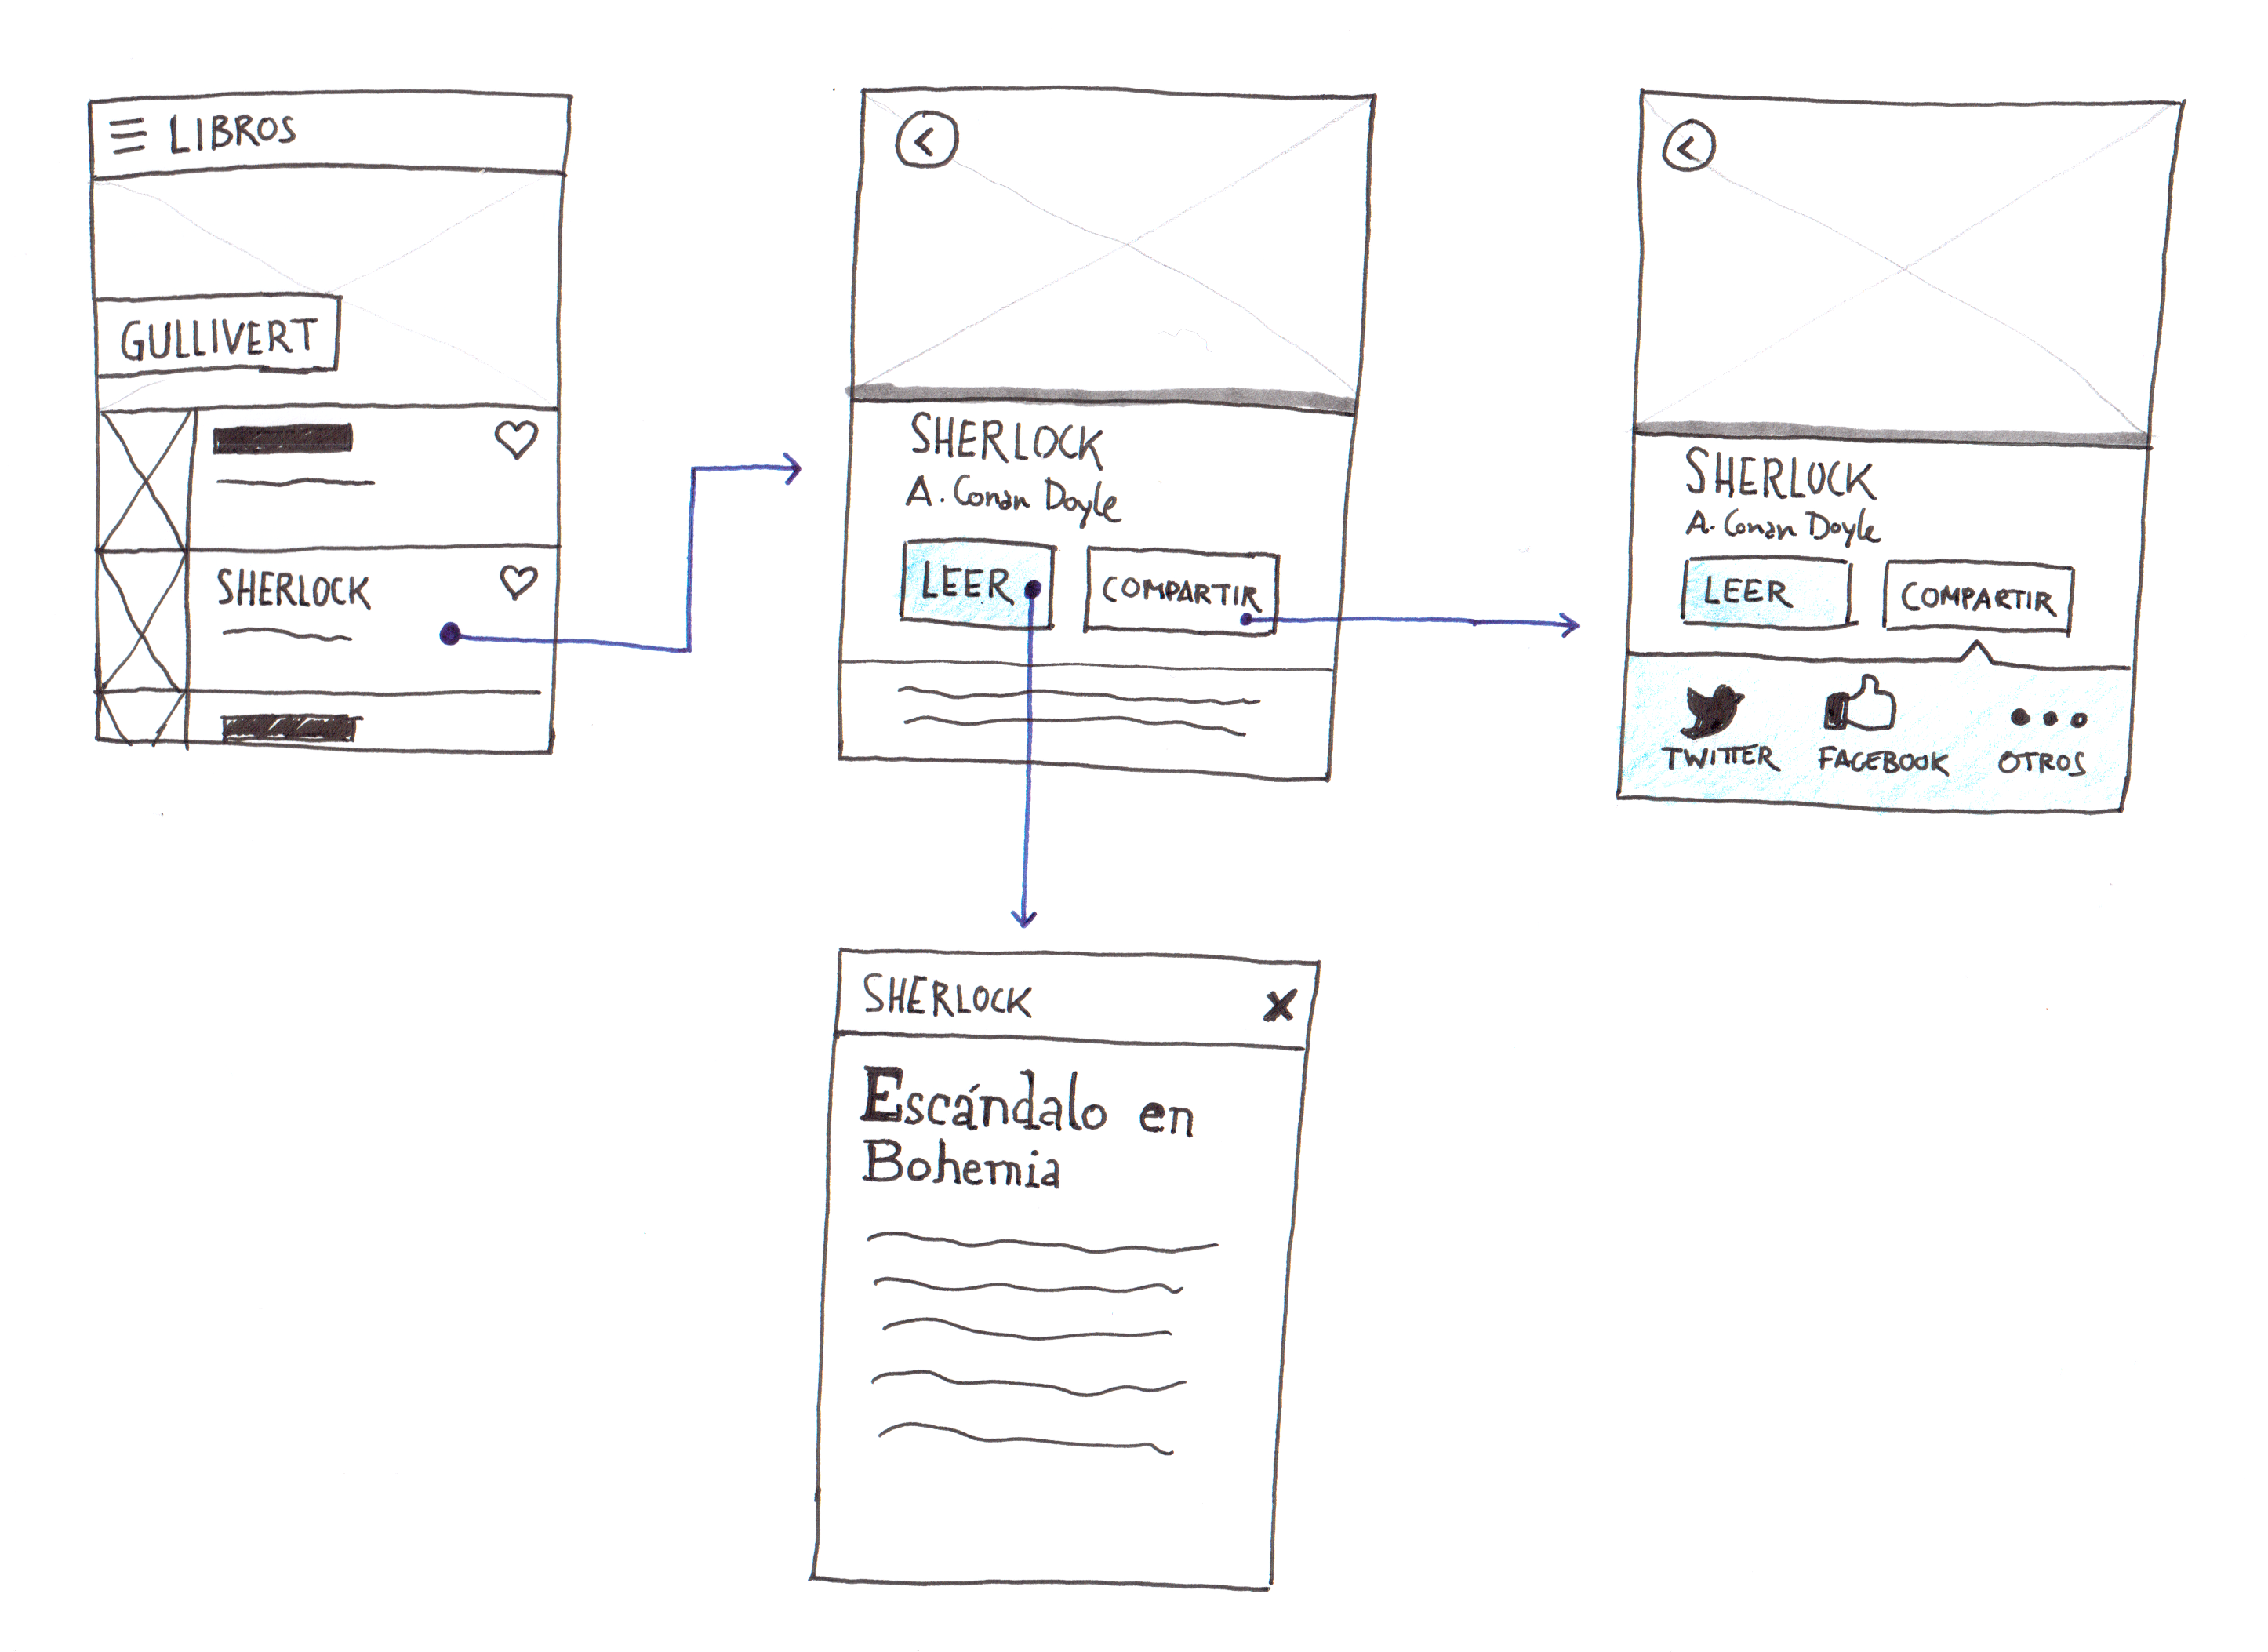 LIBROS
GULLIVERT
SHERLOCK
SHERLOCK
A. Conan Doyle
LEER
COMPARTIR
SHERLOCK
A. Conan Doyle
LEER
COMPARTIR
TWITTER
FACEBOOK
OTROS
SHERLOCK
Escándalo en
Bohemia